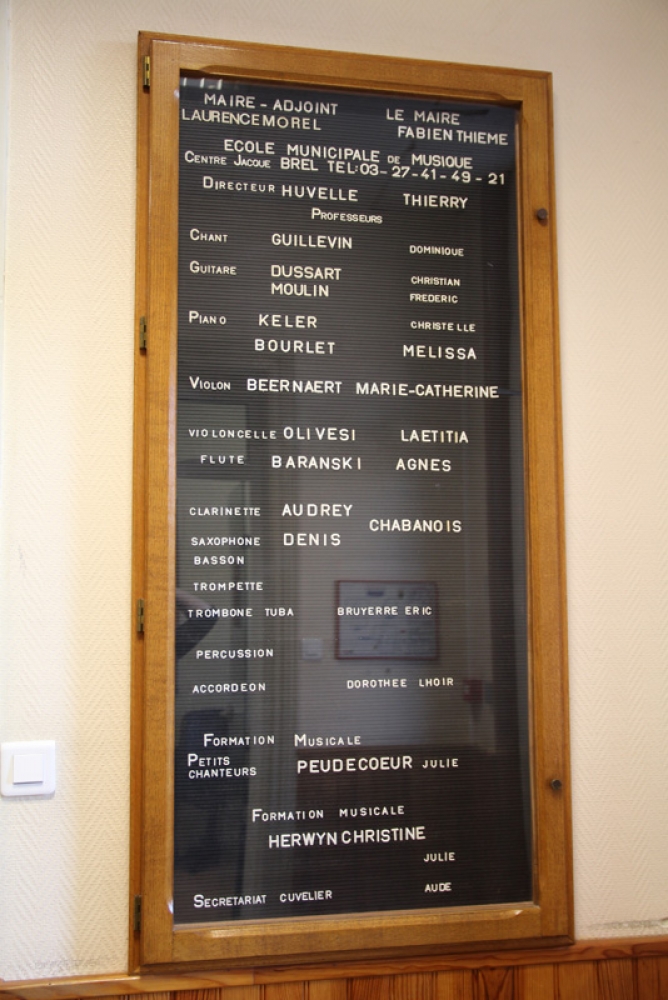 MAIRE - ADJOINT LE MAIRE
LAURENCE MOREL FABIEN THIEME
ECOLE MUNICIPALE DE MUSIQUE
CENTRE JACQUE BREL TEL:03-27-41-49-21
DIRECTEUR HUVELLE THIERRY
PROFESSEURS
CHANT GUILLEVIN DOMINIQUE
GUITARE DUSSART CHRISTIAN
MOULIN FREDERIC
PIANO KELER CHRISTELLE
BOURLET MELISSA
VIOLON BEERNAERT MARIE-CATHERINE
VIOLONCELLE OLIVESI LAETITIA
FLUTE BARANSKI AGNES
CLARINETTE AUDREY
CHABANOIS
SAXOPHONE DENIS
BASSON
TROMPETTE
TROMBONE TUBA BRUYERRE ERIC
PERCUSSION
ACCORDEON DOROTHEE LHOIR
FORMATION MUSICALE
PETITS
CHANTEURS PEUDECOEUR JULIE
FORMATION MUSICALE
HERWYN CHRISTINE
JULIE
SECRETARIAT CUVELIER AUDE